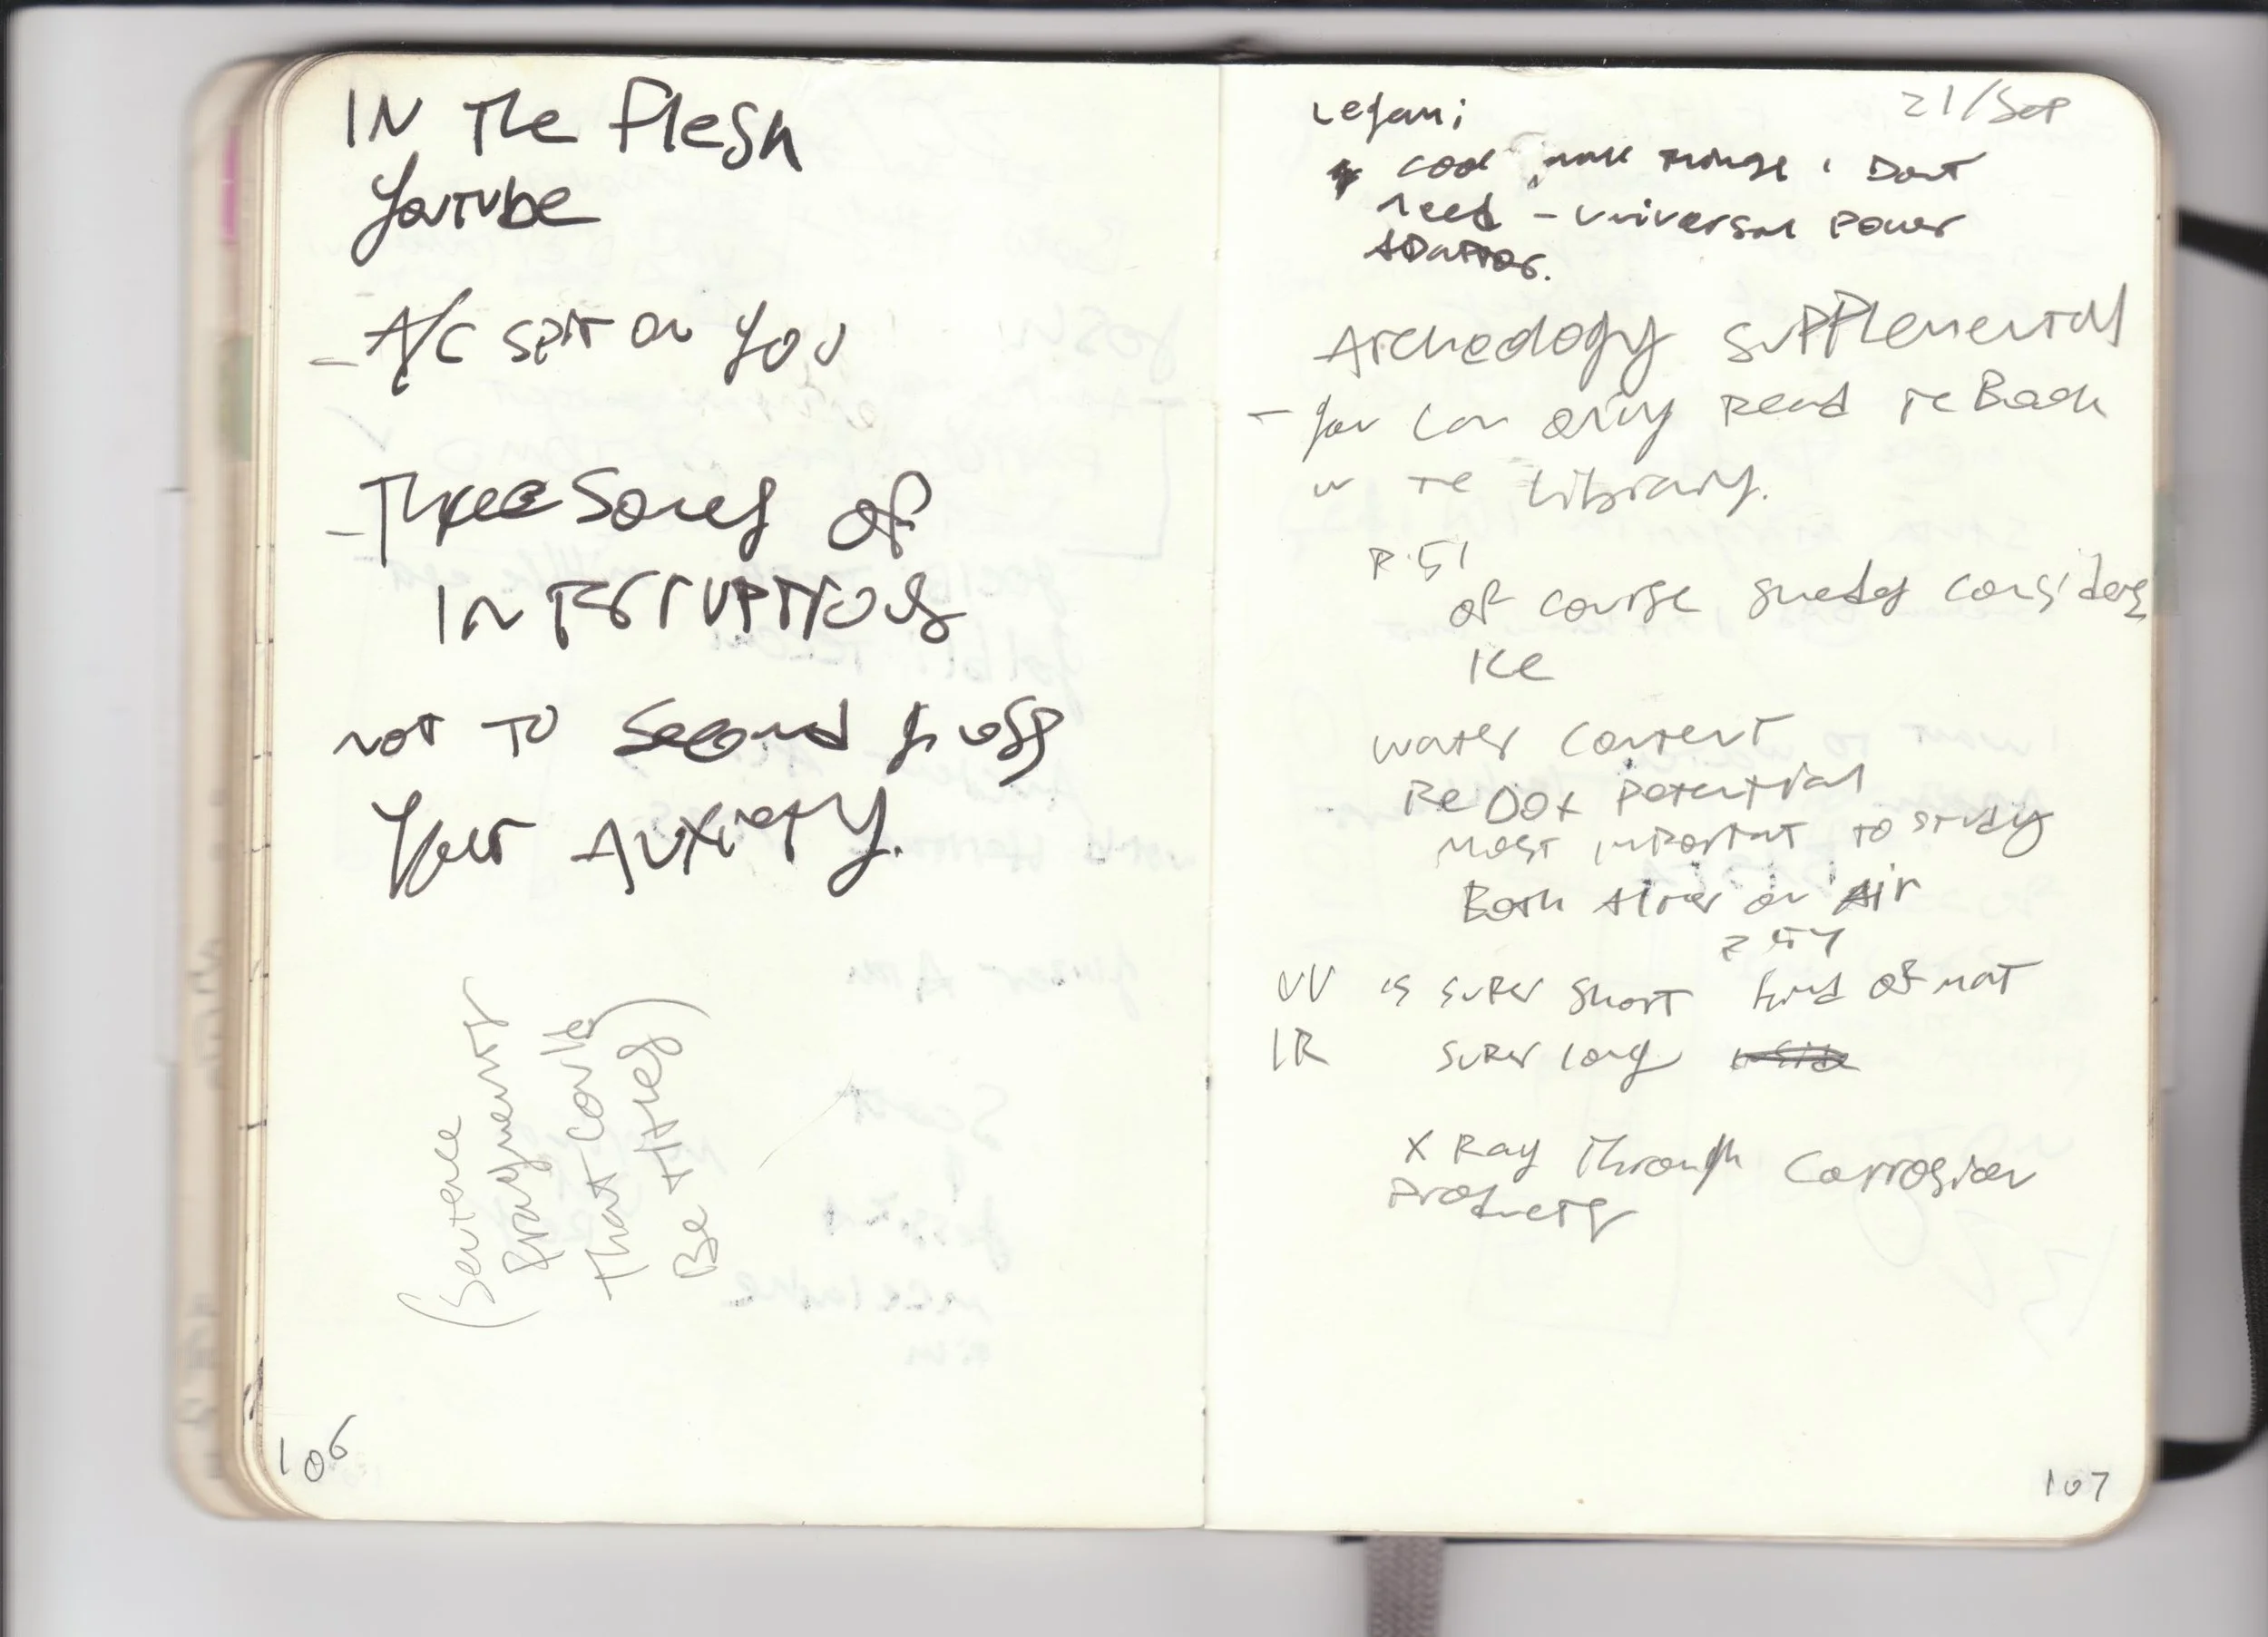 IN The Flesh
Youtube
- A/C spit on you
- Three Songs of
INTERRUPTIONS
not to second guess
Your Anxiety.
(Sentence
Fragments
That Could
Be titles)
106
21/Sep
Legami
cool things I Dont
need - universal Power
ADaptor.
Archeology supplemental
- you can only read the Book
in the Library.
P.51
of course Sweden considers
ice
water content
ReDox Potential
Most important to study
Both
UV is super short kind of not
IR super long
X Ray Through Corrosion
Products
107